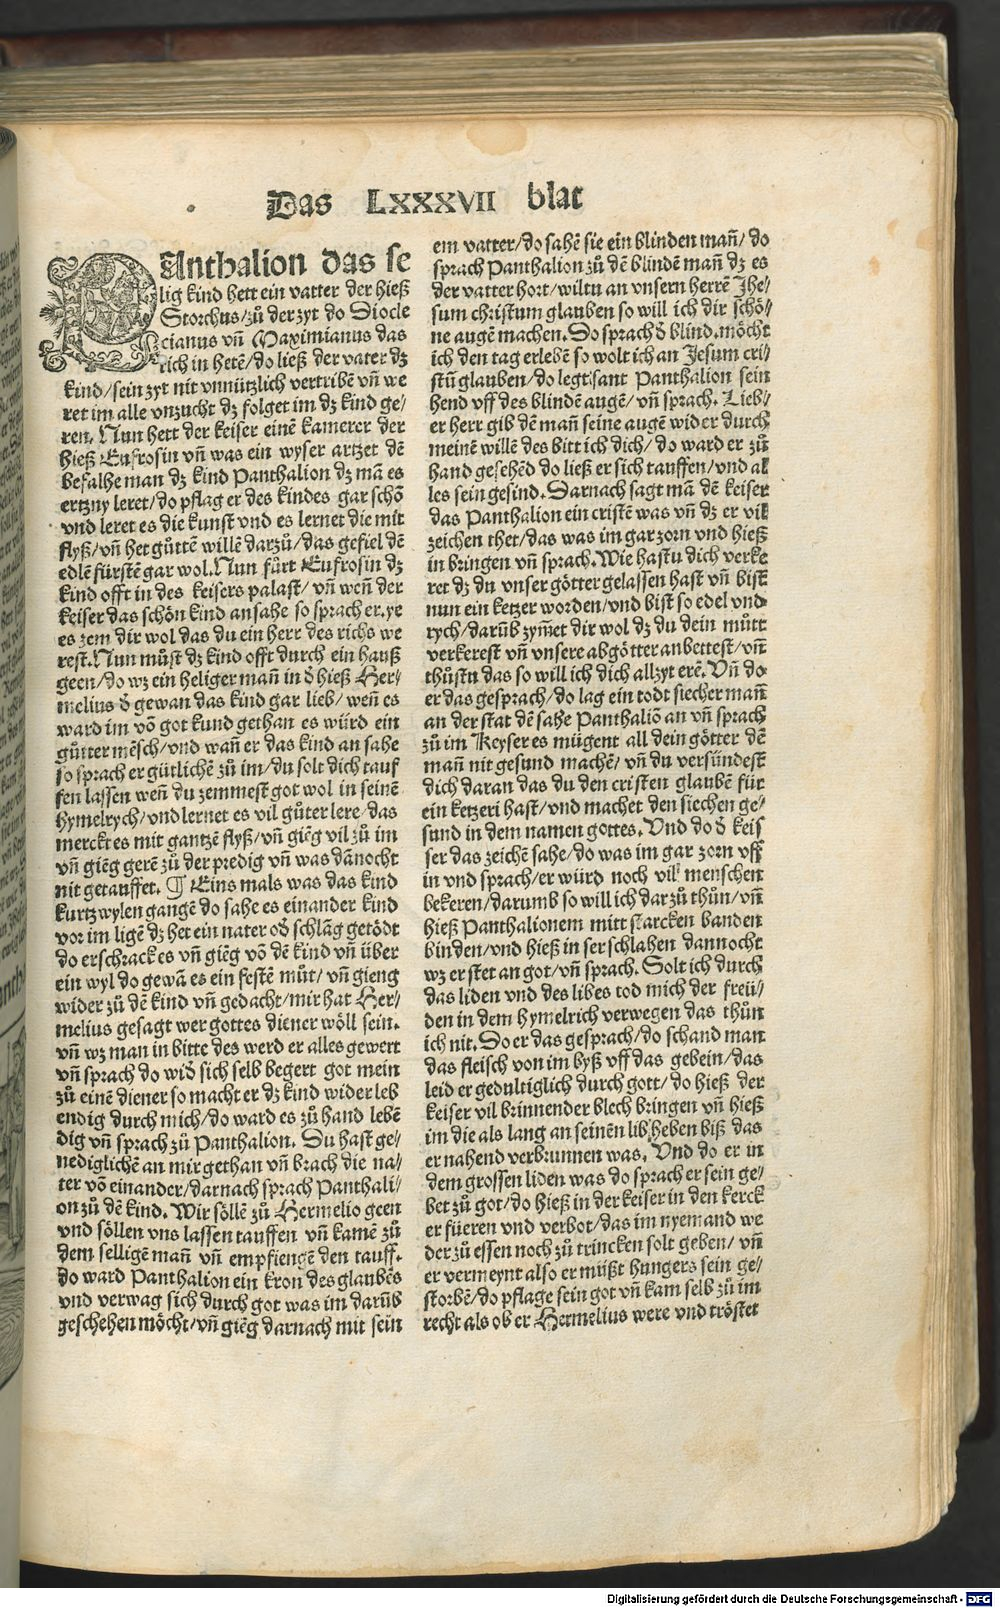 Das LXXXVII blat
PAnthalion das se
lig kind hett ein vatter der hieß
Storchus/zů der zyt do Diocle
cianus vñ Maximianus das
rich in hetē/do ließ der vater dz
kind/sein zyt nit vnnützlich vertribē vñ we
ret im alle vnzucht dz folget im dz kind ge/
ren. Nun hett der keiser einē kamerer der
hieß Eufrosin vñ was ein wyser artzet dē
befalhe man dz kind Panthalion dz mā es
ertzny leret/do pflag er des kindes gar schō
vnd leret es die kunst vnd es lernet die mit
flyß/vñ het gůttē willē darzů/das gefiel dē
edlē fürstē gar wol. Nun fůrt Eufrosin dz
kind offt in des keisers palast/ vñ wen̄ der
keiser das schōn kind ansahe so sprach er. ye
es zem dir wol das du ein herr des richs we
rest. Nun můst dz kind offt durch ein hauß
geen/do wz ein heliger man̄ in ð hieß Her/
melius ð gewan das kind gar lieb/wen̄ es
ward im vō got kund gethan es würd ein
gůtter mēsch/vnd wan̄ er das kind an sahe
so sprach er gütlichē zů im/du solt dich tauf
fen lassen wen̄ du zemmest got wol in seinē
hymelrych/vnd lernet es vil gůter lere/das
merckt es mit gantzē flyß/vñ giēg vil zů im
vñ giēg gerē zů der predig vñ was dānocht
nit getauffet. ¶ Eins mals was das kind
kurtzwylen gangē do sahe es ein ander kind
vor im ligē dz het ein nater oð schlāg getödt
do erschrack es vñ giēg vō dē kind vñ über
ein wyl do gewā es ein festē můt/ vñ gieng
wider zů dē kind vñ gedacht/mir hat Her/
melius gesagt wer gottes diener wöll sein.
vñ wz man in bitte des werd er alles gewert
vñ sprach do wið sich selb begert got mein
zů einē diener so macht er dz kind wider leb
endig durch mich/do ward es zů hand lebē
dig vñ sprach zů Panthalion. Du hast ge/
nediglichē an mir gethan vñ brach die na/
ter vō einander/darnach sprach Panthali/
on zů dē kind. Wir söllē zů Hermelio geen
vnd söllen vns lassen tauffen vñ kamē zů
dem selligē man̄ vñ empfiengē den tauff.
do ward Panthalion ein kron des glaubēs
vnd verwag sich durch got was im darūb
geschehen möcht/vñ giēg darnach mit sein
em vatter/do sahē sie ein blinden man̄/ do
sprach Panthalion zů dē blindē man̄ dz es
der vatter hort/wiltu an vnsern herrē Jhe/
sum christum glauben so will ich dir schö/
ne augē machen. Do sprach ð blind. möcht
ich den tag erlebē so wolt ich an Jesum cri/
stū glauben/do legt sant Panthalion sein
hend vff des blindē augē/ vñ sprach. Lieb/
er herr gib dē man̄ seine augē wider durch
meinē willē des bitt ich dich/ do ward er zů
hand gesehēd do ließ er sich tauffen/vnd al
les sein gesind. Darnach sagt mā dē keiser
das Panthalion ein cristē was vñ dz er vil
zeichen thet/das was im gar zorn vnd hieß
in bringen vñ sprach. Wie hastu dich verke
ret dz du vnser götter gelassen hast vñ bist
nun ein ketzer worden/vnd bist so edel vnd
rych/darūb zym̄et dir wol dz du dein můtt
verkerest vñ vnsere abgötter anbettest/vñ
thůstu das so will ich dich allzyt erē. Vñ do
er das gesprach/do lag ein todt siecher man̄
an der stat dē sahe Panthaliō an vñ sprach
zů im Keyser es mügent all dein götter dē
man̄ nit gesund machē/ vñ du versündest
dich daran das du den cristen glaubē für
ein ketzeri hast/vnd machet den siechen ge/
sund in dem namen gottes. Vnd do ð keis
ser das zeichē sahe/do was im gar zorn vff
in vnd sprach/er würd noch vil menschen
bekeren/darumb so will ich darzů thůn/vñ
hieß Panthalionem mitt starcken banden
binden/vnd hieß in ser schlahen dannocht
wz er stet an got/vñ sprach. Solt ich durch
das liden vnd des libes tod mich der freü/
den in dem hymelrich verwegen das thůn
ich nit. Do er das gesprach/do schand man
das fleisch von im byß vff das gebein/das
leid er gedultiglich durch gott/do hieß der
keiser vil brinnender blech bringen vñ hieß
im die als lang an seinēn lib heben biß das
er nahend verbrunnen was. Vnd do er in
dem grossen liden was do sprach er sein ge/
bet zů got/do hieß in der keiser in den kerck
er füeren vnd verbot/das im nyemand we
der zů essen noch zů trincken solt geben/ vñ
er vermeynt also er müßt hungers sein ge/
storbē/do pflage sein got vñ kam selb zů im
recht als ob er Hermelius were vnd tröstet
Digitalisierung gefördert durch die Deutsche Forschungsgemeinschaft - DFG